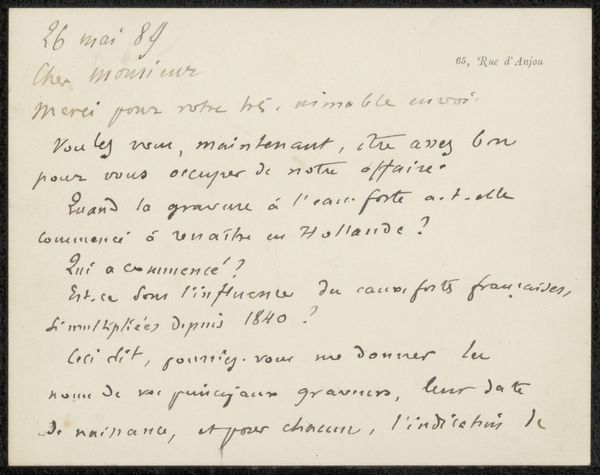 26 mai 89
65, Rue d'Anjou
Cher monsieur
Merci pour votre très aimable envoi.
Voulez vous, maintenant, être assez bon
pour vous occuper de notre affaire.
Quand la gravure à l'eau forte a-t-elle
commencé à renaître en Hollande ?
Qui a commencé ?
Est-ce sous l'influence des eaux-fortes françaises,
si multipliées depuis 1840 ?
Ceci dit, pourriez-vous me donner les
noms de vos principaux graveurs, leur date
de naissance, et pour chacun, l'indication de